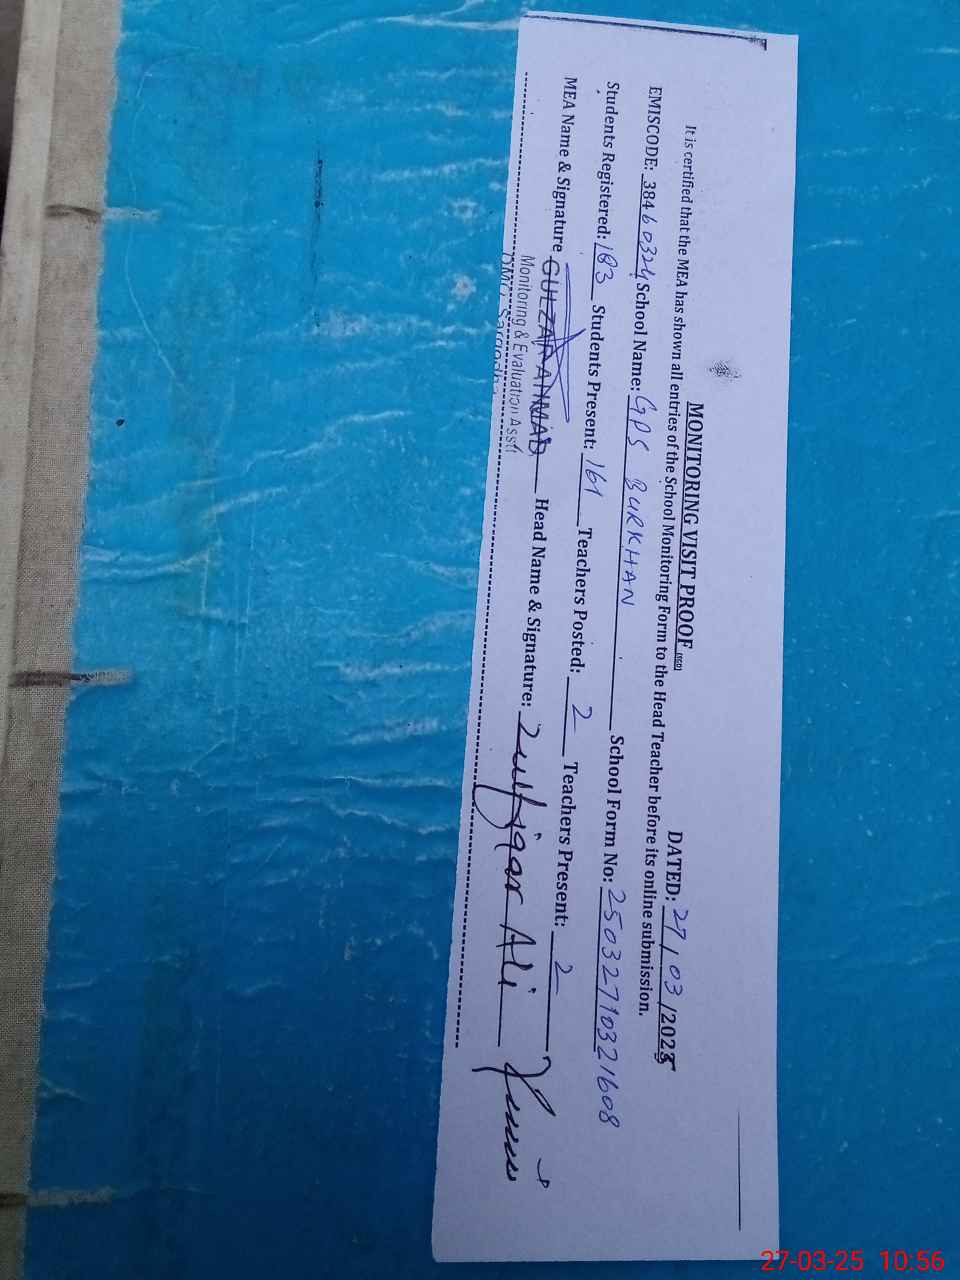 MONITORING VISIT PROOF DATED: 27/03/2025
It is certified that the MEA has shown all entries of the School Monitoring Form to the Head Teacher before its online submission.
EMISCODE: 38460324 School Name: GPS BURKHAN School Form No: 25032710321608
Students Registered: 183 Students Present: 161 Teachers Posted: 2 Teachers Present: 2
MEA Name & Signature GULZAR AHMAD Head Name & Signature: Zulfiqar Ali
Monitoring & Evaluation Asstt
DMO Sargodha
27-03-25 10:56